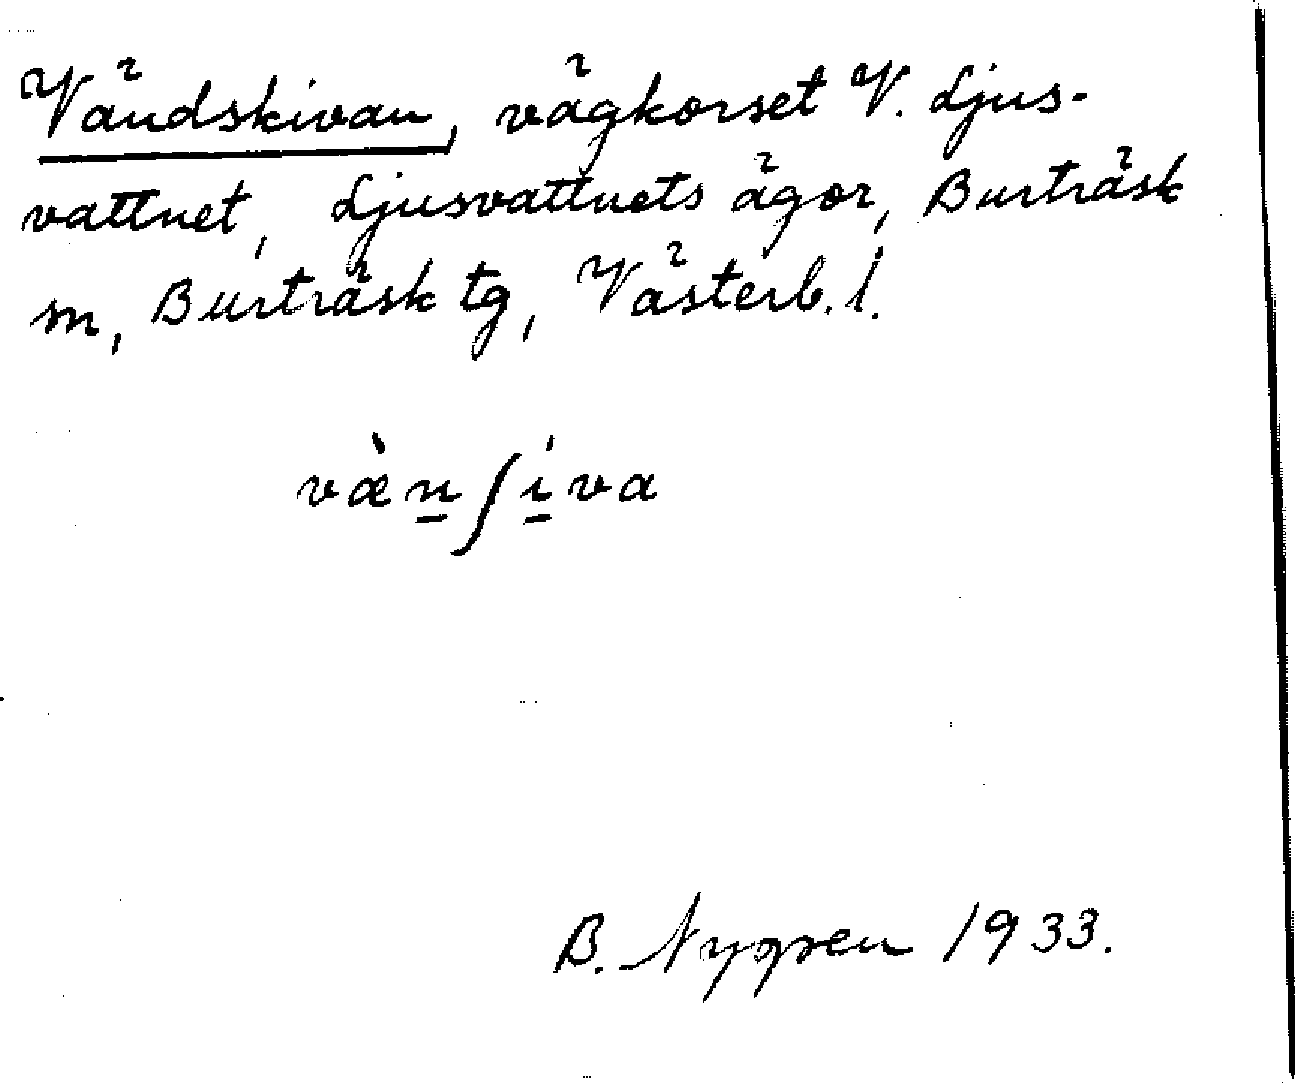 Vändskivan, vägkorset V. Ljus-
vattnet, Ljusvattnets ägor, Burträsk
sn, Burträsk tg, Västerb. l.
væ̀n̲ʃi̲va
B. Nygren 1933.